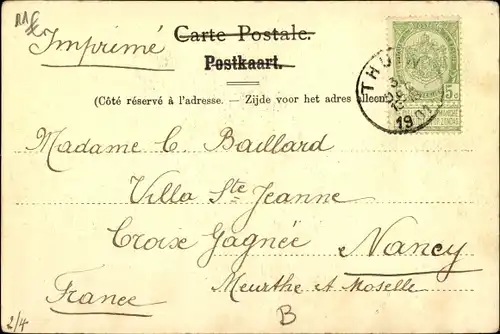 Imprimé
Carte Postale.
Postkaart.
(Côté réservé à l'adresse. – Zijde voor het adres alleen.)
THU
1901
5
Madame C. Baillard
Villa Ste Jeanne
Croix Gagnée
Nancy
France
Meurthe et Moselle
B
2/4